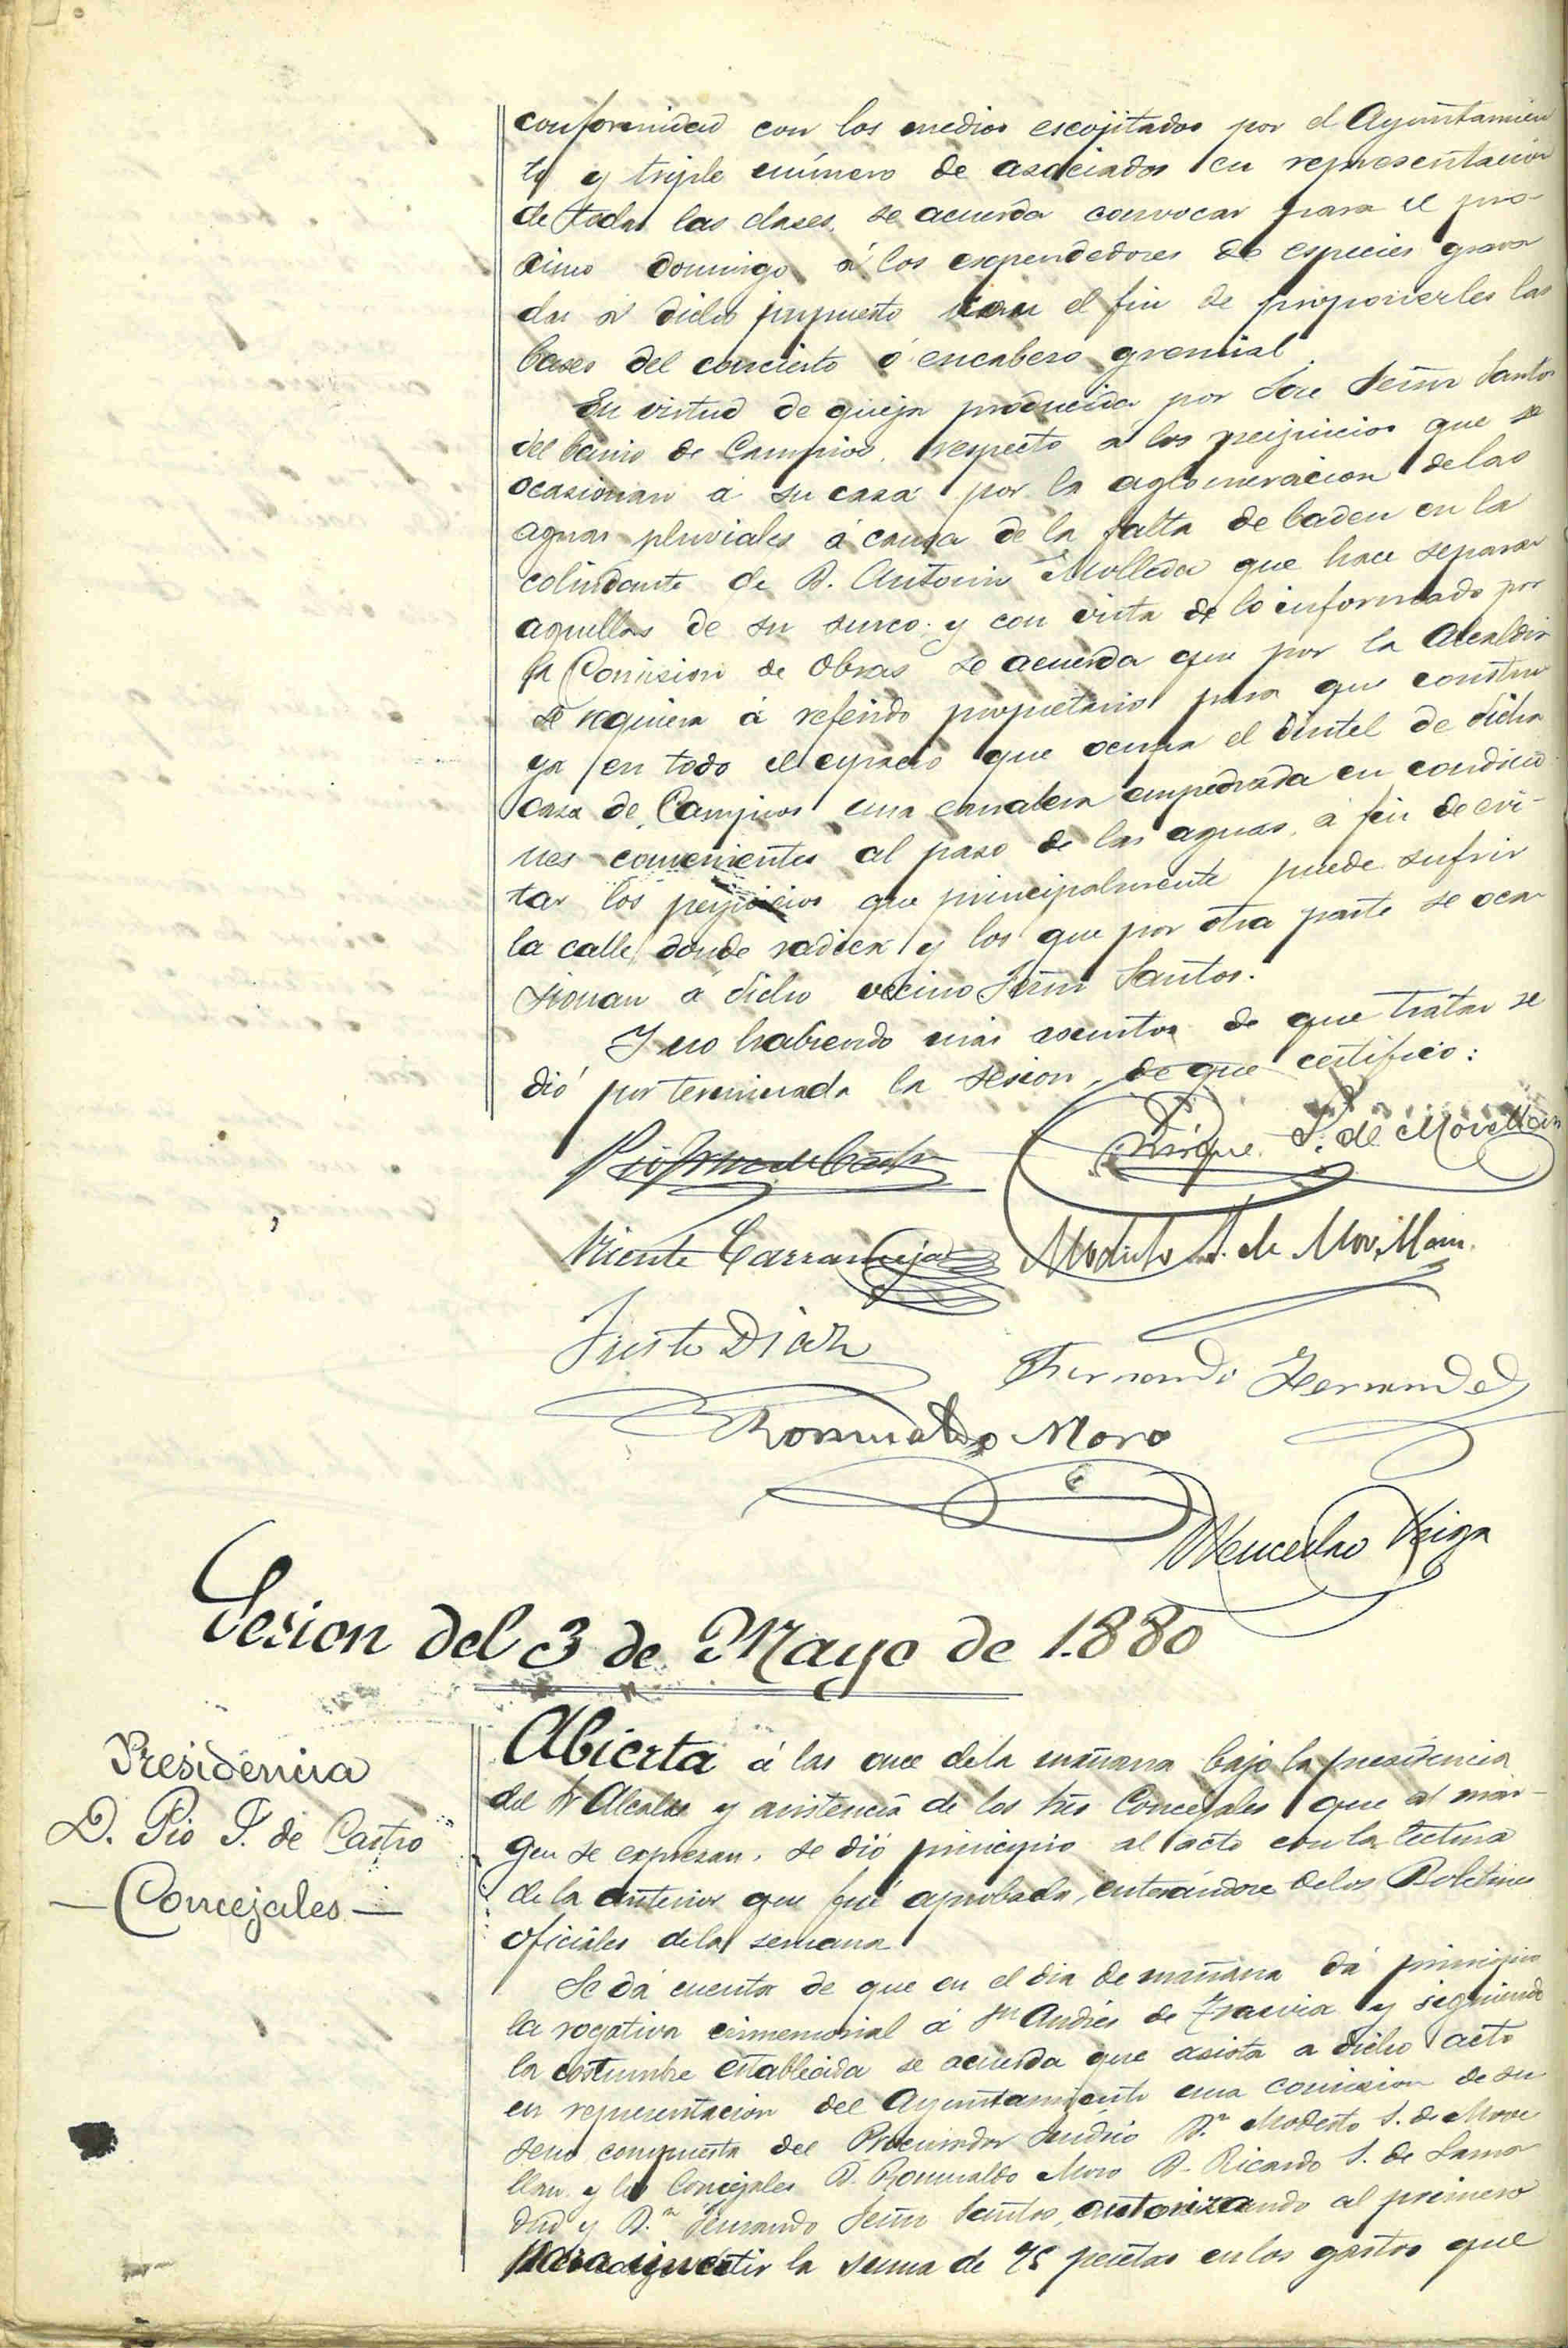 conformidad con los medios escojitados por el Ayuntamien
to y triple número de asociados en representacion
de todas las clases, se acuerda convocar para el pro-
simo domingo á los expendedores de especies grava
das á dicho impuesto con el fin de proponerles las
bases del concierto ó encabezo gremial.
En virtud de queja producida por José Santos
del barrio de Campios, respecto á los perjuicios que se
ocasionan á su casa por la aglomeracion de las
aguas pluviales á causa de la falta de baden en la
colindante de D. Antonio Molleda que hace separar
aquellas de su surco; y con vista de lo informado por
la Comision de Obras se acuerda que por la Alcaldia
se requiera á referido propietario para que constru
ya en todo el espacio que ocupa el dintel de dicha
casa de Campios una canalera empedrada en condicio
nes convenientes al paso de las aguas, á fin de evi-
tar los perjuicios que principalmente puede sufrir
la calle donde radica y los que por otra parte se oca
sionan á dicho vecino Santos.
Y no habiendo más asuntos de que tratar se
dió por terminada la sesion, de que certifico:
Roque S. de Movellan
Vicente Carranceja Modesto S. de Movellan
Justo Diaz
Fernando Fernandez
Romualdo Moro
Wenceslao Veiga
Sesion del 3 de Mayo de 1.880
Presidencia
D. Pio F. de Castro
— Concejales —
Abierta á las once de la mañana bajo la presidencia
del Sr Alcalde y asistencia de los tres Concejales que al már-
gen se expresan, se dió principio al acto con la lectura
de la anterior que fué aprobada, enterándose de los Boletines
oficiales de la semana.
Se dá cuenta de que en el dia de mañana dá principio
la rogativa inmemorial á Sn Andrés de y siguiendo
la costumbre establecida se acuerda que asista a dicho acto
en representacion del Ayuntamiento una comision de su
seno compuesta del Procurador Síndico D.n Modesto S. de Move
llan y los Concejales D. Romualdo Moro D. Ricardo S. de
y D.n Fernando Santos, autorizando al primero
para invertir la suma de 75 pesetas en los gastos que